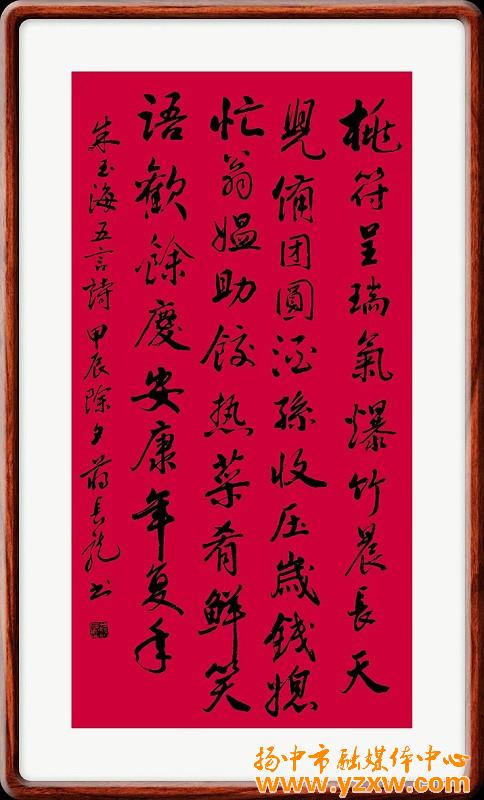 桃符呈瑞氣爆竹晨長天
兒備团圓酒孫收压歲錢媳
忙翁媪助餃热菜肴鮮笑
語歡餘慶安康年复年
朱玉海五言詩 甲辰除夕 蔣長龍书
扬中市融媒体中心
www.yzxw.com